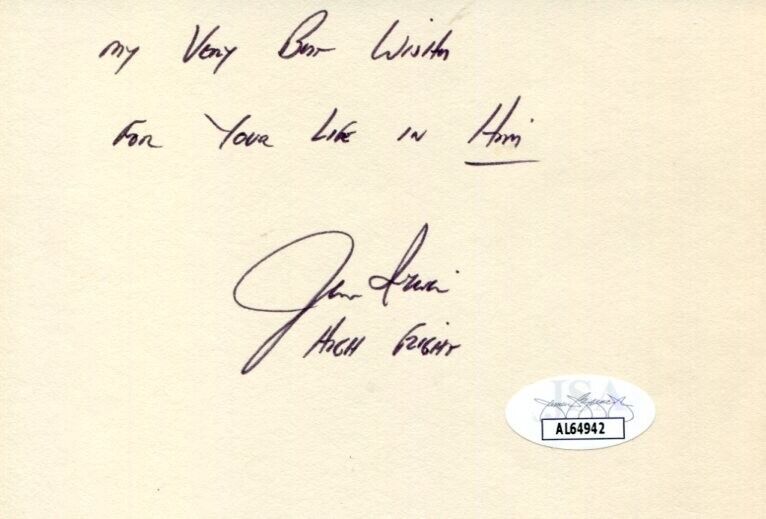 My Very Best Wishes
For Your Life in Him
Jim Irwin
High Flight
JSA
AL64942